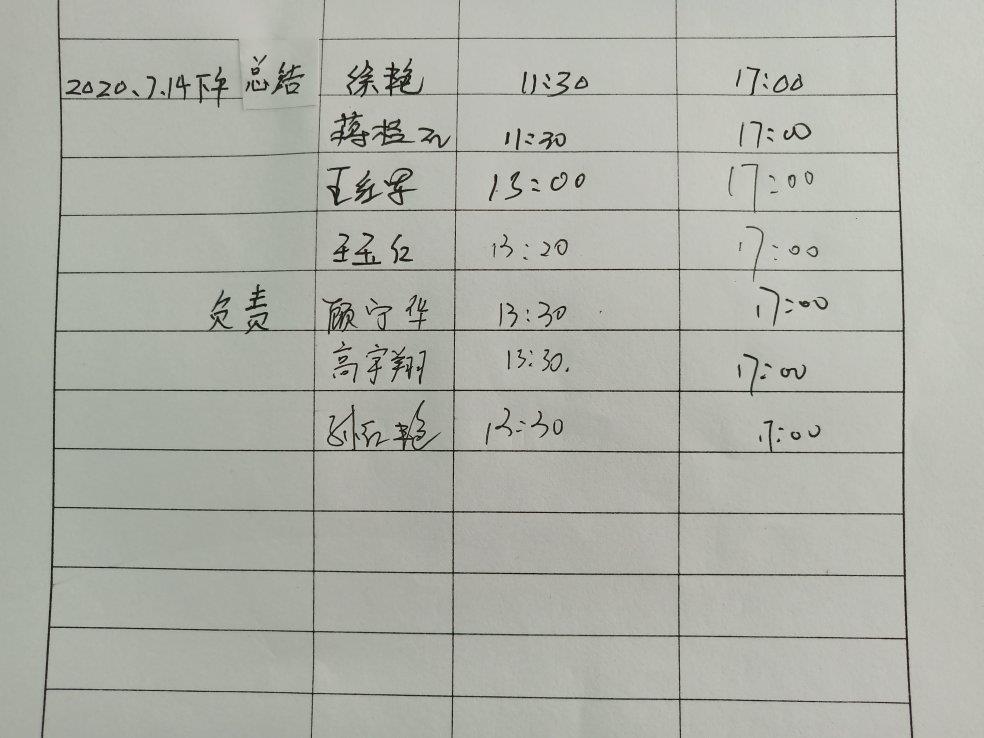 2020、7.14下午 总结 徐艳 11:30 17:00
蒋 11:30 17:00
王红军 13:00 17:00
王玉红 13:20 17:00
负责 顾守华 13:30 17:00
高宇翔 13:30. 17:00
孙红艳 13:30 17:00